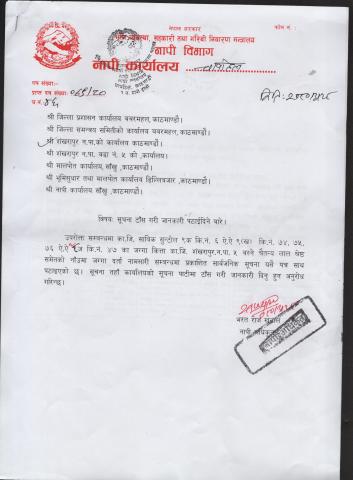 नेपाल सरकार
फोन नं. :
व्यवस्था, सहकारी तथा गरिबी निवारण मन्त्रालय
नापी विभाग
नापी कार्यालय
पत्र संख्याः-
प्राप्त पत्र संख्याः
च.नं.
श्री जिल्ला प्रशासन कार्यालय बबरमहल, काठमाण्डौं।
श्री जिल्ला समन्वय समितीको कार्यालय बबरमहल, काठमाण्डौं।
श्री शंखरापुर न.पा.को कार्यालय काठमाण्डौं।
श्री शंखरापुर न.पा. वडा नं. ५ को कार्यालय।
श्री मालपोत कार्यालय साँखु, काठमाण्डौं।
श्री भूमिसुधार तथा मालपोत कार्यालय डिल्लिबजार, काठमाण्डौं।
श्री नापी कार्यालय साँखु, काठमाण्डौं।
विषयः सूचना टाँस गरी जानकारी पठाईदिने बारे।
उपरोक्त सम्वन्धमा का.जि. साविक सुन्टोल ९क कि.नं. ६ ऐ ऐ ९(ख) कि.नं. ७४, ७५,
७६ ऐ.ऐ कि.नं. ४७ का जग्गा कित्ता का.जि. शंखरापुर.न.पा. ५ बस्ने चैतन्य लाल श्रेष्ठ
समेतको नाँउमा जग्गा दर्ता नामसारी सम्वन्धमा प्रकाशित सार्वजनिक सूचना यसै पत्र साथ
पठाइएको छ। सूचना तहाँ कार्यालयको सूचना पाटीमा टाँस गरी जानकारी दिनु हुन अनुरोध
गरिन्छ।
भरत राज
नापी अधिकृत